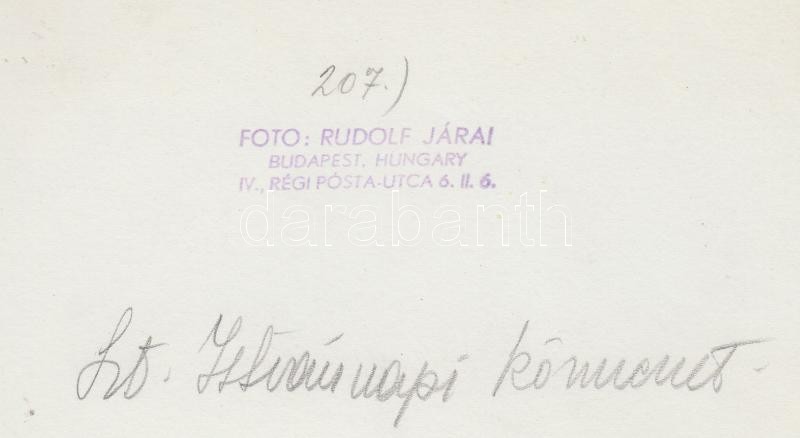 207.)
FOTO: RUDOLF JÁRAI
BUDAPEST, HUNGARY
IV., RÉGI PÓSTA-UTCA 6. II. 6.
darabanth
Szt. Istvánnapi körmenet.